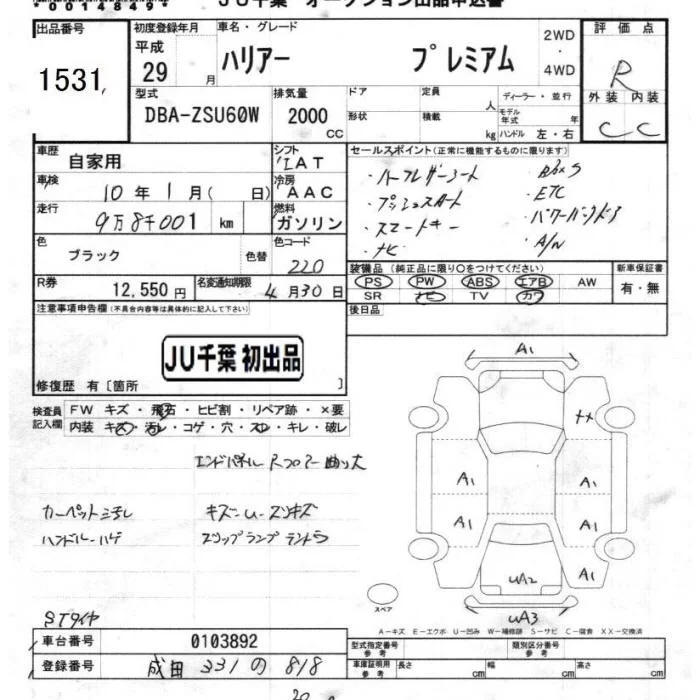 *00148494*
JU千葉 オークション出品申込書
出品番号 初度登録年月 車名・グレード 2WD 評価点
1531 平成 29 月 ハリアー プレミアム ・ 4WD R
外装 内装
C C
型式 排気量 ドア 定員 人 ディーラー・並行
DBA-ZSU60W 2000 CC 形状 積載 kg モデル年式 年
ハンドル 左・右
車歴 自家用 シフト IAT セールスポイント(正常に機能するものに限ります)
車検 10年1月( 日) 冷房 AAC
走行 9万8千001 km 燃料 ガソリン
・ハーフレザーシート
・プッシュスタート ・ETC
・スマートキー ・パワーバックドア
・ナビ ・A/W
色 ブラック 色替 色コード 220
装備品(純正品に限り○をつけてください) 新車保証書
PS PW ABS エアB AW 有・無
SR ナビ TV カワ
R券 12,550円 名変通知期限 4月30日
後日品
注意事項申告欄(不具合内容等は具体的に記入して下さい)
JU千葉 初出品
修復歴 有〔箇所 〕
検査員記入欄 FW キズ・飛石・ヒビ割・リペア跡・×要
内装 キズ・汚レ・コゲ・穴・スレ・キレ・破レ
エンドパネル Rフロアー曲り大
カーペット汚れ キズ
ハンドルハゲ
STタイヤ
A1
XX
A1 A1
A1 A1
UA2 A1
UA3
スペア
A-キズ E-エクボ U-凹み W-補修跡 S-サビ C-腐食 XX-交換済
車台番号 0103892 型式指定番号 参考 類別区分番号 参考
登録番号 成田 331 の 818 車庫証明用 参考 長さ cm 幅 cm 高さ cm